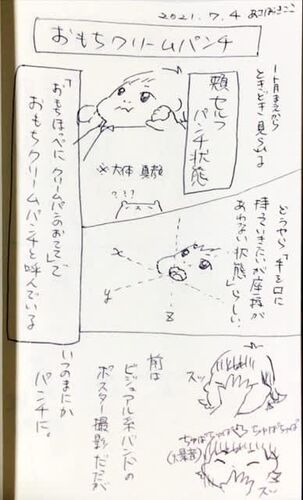 2021.7.4
おもちクリームパンチ
1ヶ月まえから
ときどき見られる
頬セルフ
パンチ状態
※大体 真顔
???
「おもちほっぺにクリームパンのおてて」で
おもちクリームパンチと呼んでいる
どうやら「手を口に
持っていきたいが座標が
あわない状態」らしい。
x
y
z
前は
ビジュアル系バンドの
ポスター撮影だったが
いつのまにか
パンチに。
スッ
ちゅぱちゅぱ
ちゅぱちゅぱ
スッ